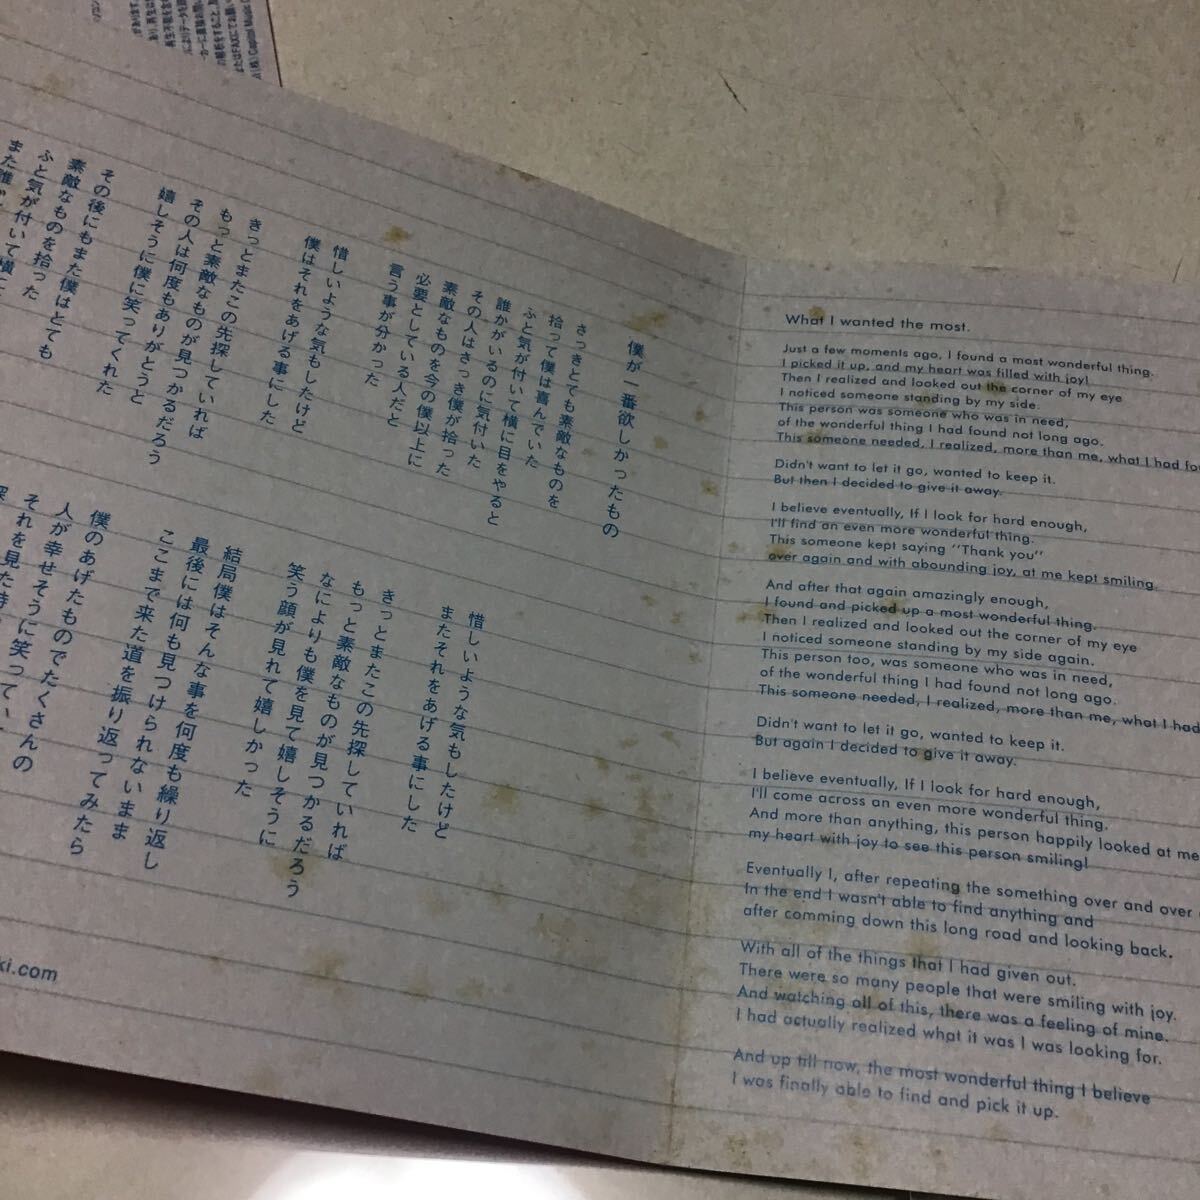 僕が一番欲しかったもの
さっきとても素敵なものを
拾って僕は喜んでいた
ふと気が付いて横に目をやると
誰かがいるのに気付いた
その人はさっき僕が拾った
素敵なものを今の僕以上に
必要としている人だと
言う事が分かった
惜しいような気もしたけど
僕はそれをあげる事にした
きっとまたこの先探していれば
もっと素敵なものが見つかるだろう
その人は何度もありがとうと
嬉しそうに僕に笑ってくれた
その後にもまた僕はとても
素敵なものを拾った
ふと気が付いて横に
また誰か
惜しいような気もしたけど
またそれをあげる事にした
きっとまたこの先探していれば
もっと素敵なものが見つかるだろう
なによりも僕を見て嬉しそうに
笑う顔が見れて嬉しかった
結局僕はそんな事を何度も繰り返し
最後には何も見つけられないまま
ここまで来た道を振り返ってみたら
僕のあげたものでたくさんの
人が幸せそうに笑ってい
それを見た時
ki.com
What I wanted the most.
Just a few moments ago, I found a most wonderful thing.
I picked it up, and my heart was filled with joy!
Then I realized and looked out the corner of my eye
I noticed someone standing by my side.
This person was someone who was in need,
of the wonderful thing I had found not long ago.
This someone needed, I realized, more than me, what I had
Didn't want to let it go, wanted to keep it.
But then I decided to give it away.
I believe eventually, If I look for hard enough,
I'll find an even more wonderful thing.
This someone kept saying "Thank you"
over again and with abounding joy, at me kept smiling.
And after that again amazingly enough,
I found and picked up a most wonderful thing.
Then I realized and looked out the corner of my eye
I noticed someone standing by my side again.
This person too, was someone who was in need,
of the wonderful thing I had found not long ago.
This someone needed, I realized, more than me, what I had
Didn't want to let it go, wanted to keep it.
But again I decided to give it away.
I believe eventually, If I look for hard enough,
I'll come across an even more wonderful thing.
And more than anything, this person happily looked at me
my heart with joy to see this person smiling!
Eventually I, after repeating the something over and over
In the end I wasn't able to find anything and
after comming down this long road and looking back.
With all of the things that I had given out.
There were so many people that were smiling with joy.
And watching all of this, there was a feeling of mine.
I had actually realized what it was I was looking for.
And up till now, the most wonderful thing I believe
I was finally able to find and pick it up.